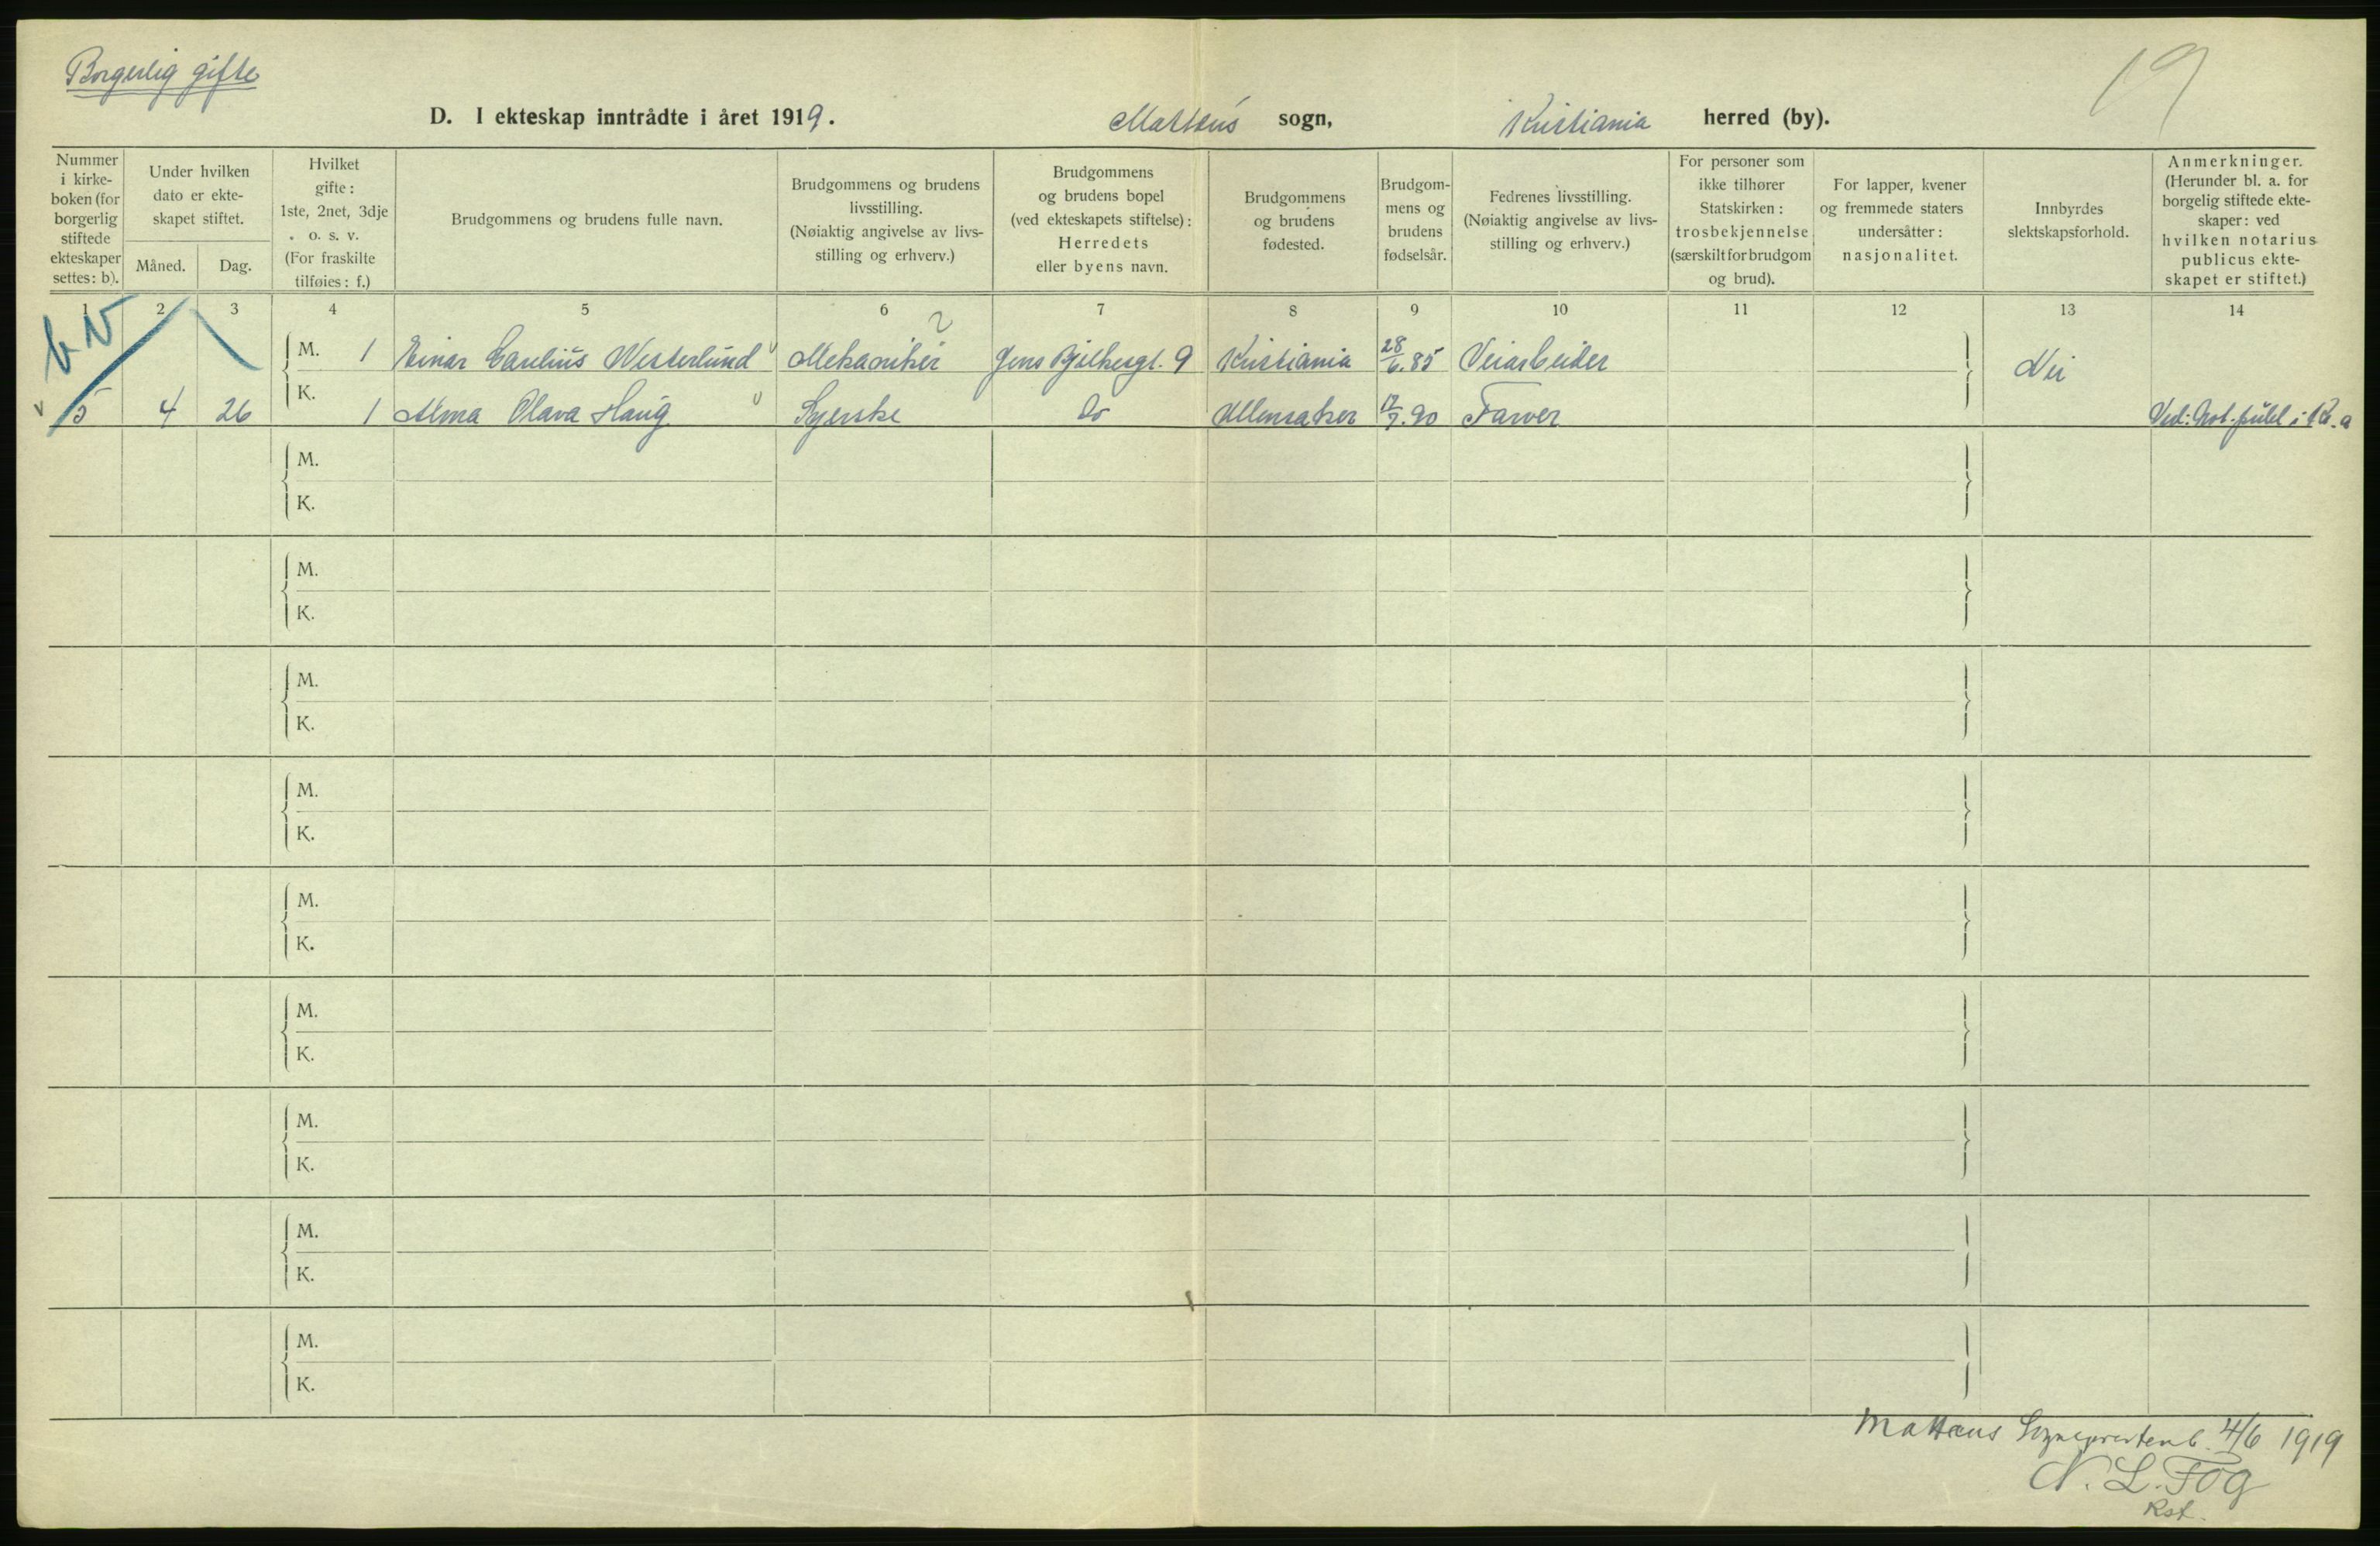 Borgerlig gifte
19
D. I ekteskap inntrådte i året 1919. Matteus sogn, Kristiania herred (by).
Nummer i kirkeboken (for borgerlig stiftede ekteskaper settes: b).
Under hvilken dato er ekteskapet stiftet.
Måned. Dag.
Hvilket gifte: 1ste, 2net, 3dje o. s. v. (For fraskilte tilføies: f.)
Brudgommens og brudens fulle navn.
Brudgommens og brudens livsstilling. (Nøiaktig angivelse av livsstilling og erhverv.)
Brudgommens og brudens bopel (ved ekteskapets stiftelse): Herredets eller byens navn.
Brudgommens og brudens fødested.
Brudgommens og brudens fødselsår.
Fedrenes livsstilling. (Nøiaktig angivelse av livsstilling og erhverv.)
For personer som ikke tilhører Statskirken: trosbekjennelse (særskilt for brudgom og brud).
For lapper, kvener og fremmede staters undersåtter: nasjonalitet.
Innbyrdes slektskapsforhold.
Anmerkninger. (Herunder bl. a. for borgelig stiftede ekteskaper: ved hvilken notarius publicus ekteskapet er stiftet.)
1 2 3 4 5 6 7 8 9 10 11 12 13 14
M. 1 Einar Carelius Westerlund Mekaniker Jens Bjelkesgt. 9 Kristiania 28/6.85 Veiarbeider Nei
5 4 26 K. 1 Alma Olava Haug Syerske Do Ullensaker 17/7.90 Farver Ved: Not. publ i Kr.a
M.
K.
M.
K.
M.
K.
M.
K.
M.
K.
M.
K.
M.
K.
M.
K.
M.
K.
Matteus Sogneprestemb. 4/6 1919
N. L. Fog
Rst.